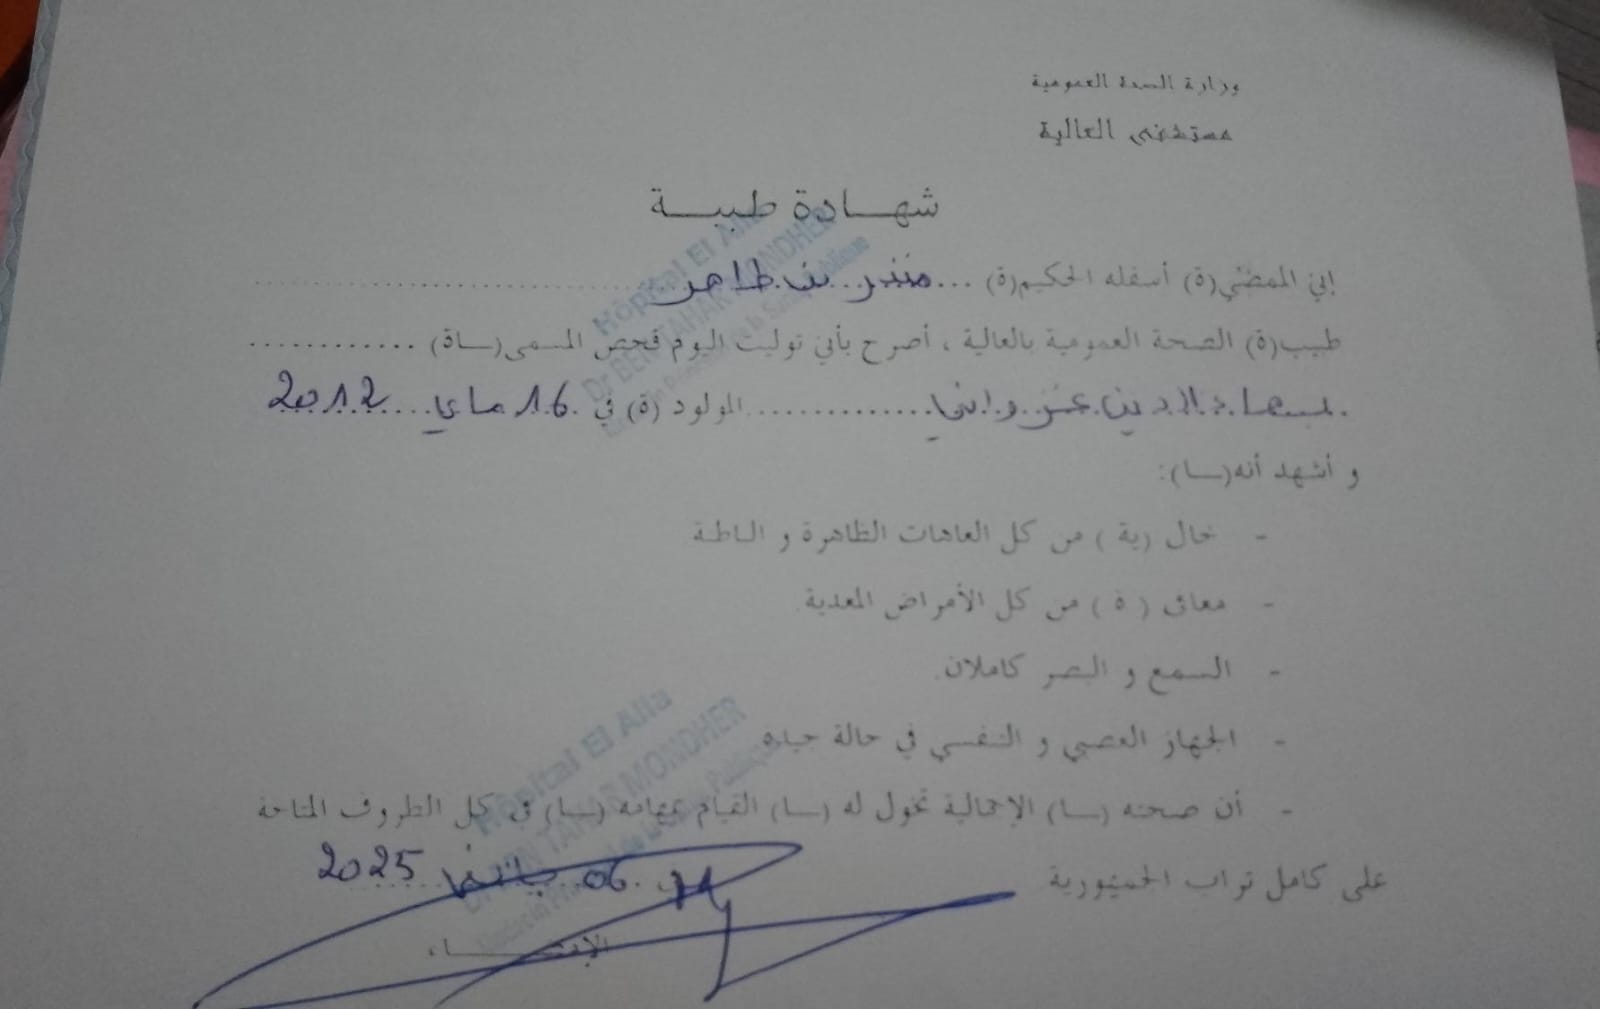 وزارة الصحة العمومية
مستشفى العالية
شهـــادة طبيـــة
إني الممضي(ة) أسفله الحكيم(ة) ... منذر بن طاهر ..............
طبيب(ة) الصحة العمومية بالعالية ، أصرح بأني توليت اليوم فحص المسمى(ـاة) ............
بهاء الدين غزواني ............... المولود (ة) في 16 ماي 2012
و أشهد أنه(ـا):
- خال (ية ) من كل العاهات الظاهرة و الباطنة
- معافى ( ة ) من كل الأمراض المعدية
- السمع و البصر كاملان.
- الجهاز العصبي و النفسي في حالة جيدة
- أن صحته (ـا) الإجمالية تخول له (ـا) القيام بمهامه (ـا) في كل الظروف المتاحة
على كامل تراب الجمهورية
06 2025
الإمضـــاء،
Hôpital El Alia
Dr BEN TAHAR MONDHER
Hôpital El Alia
Dr BEN TAHAR MONDHER